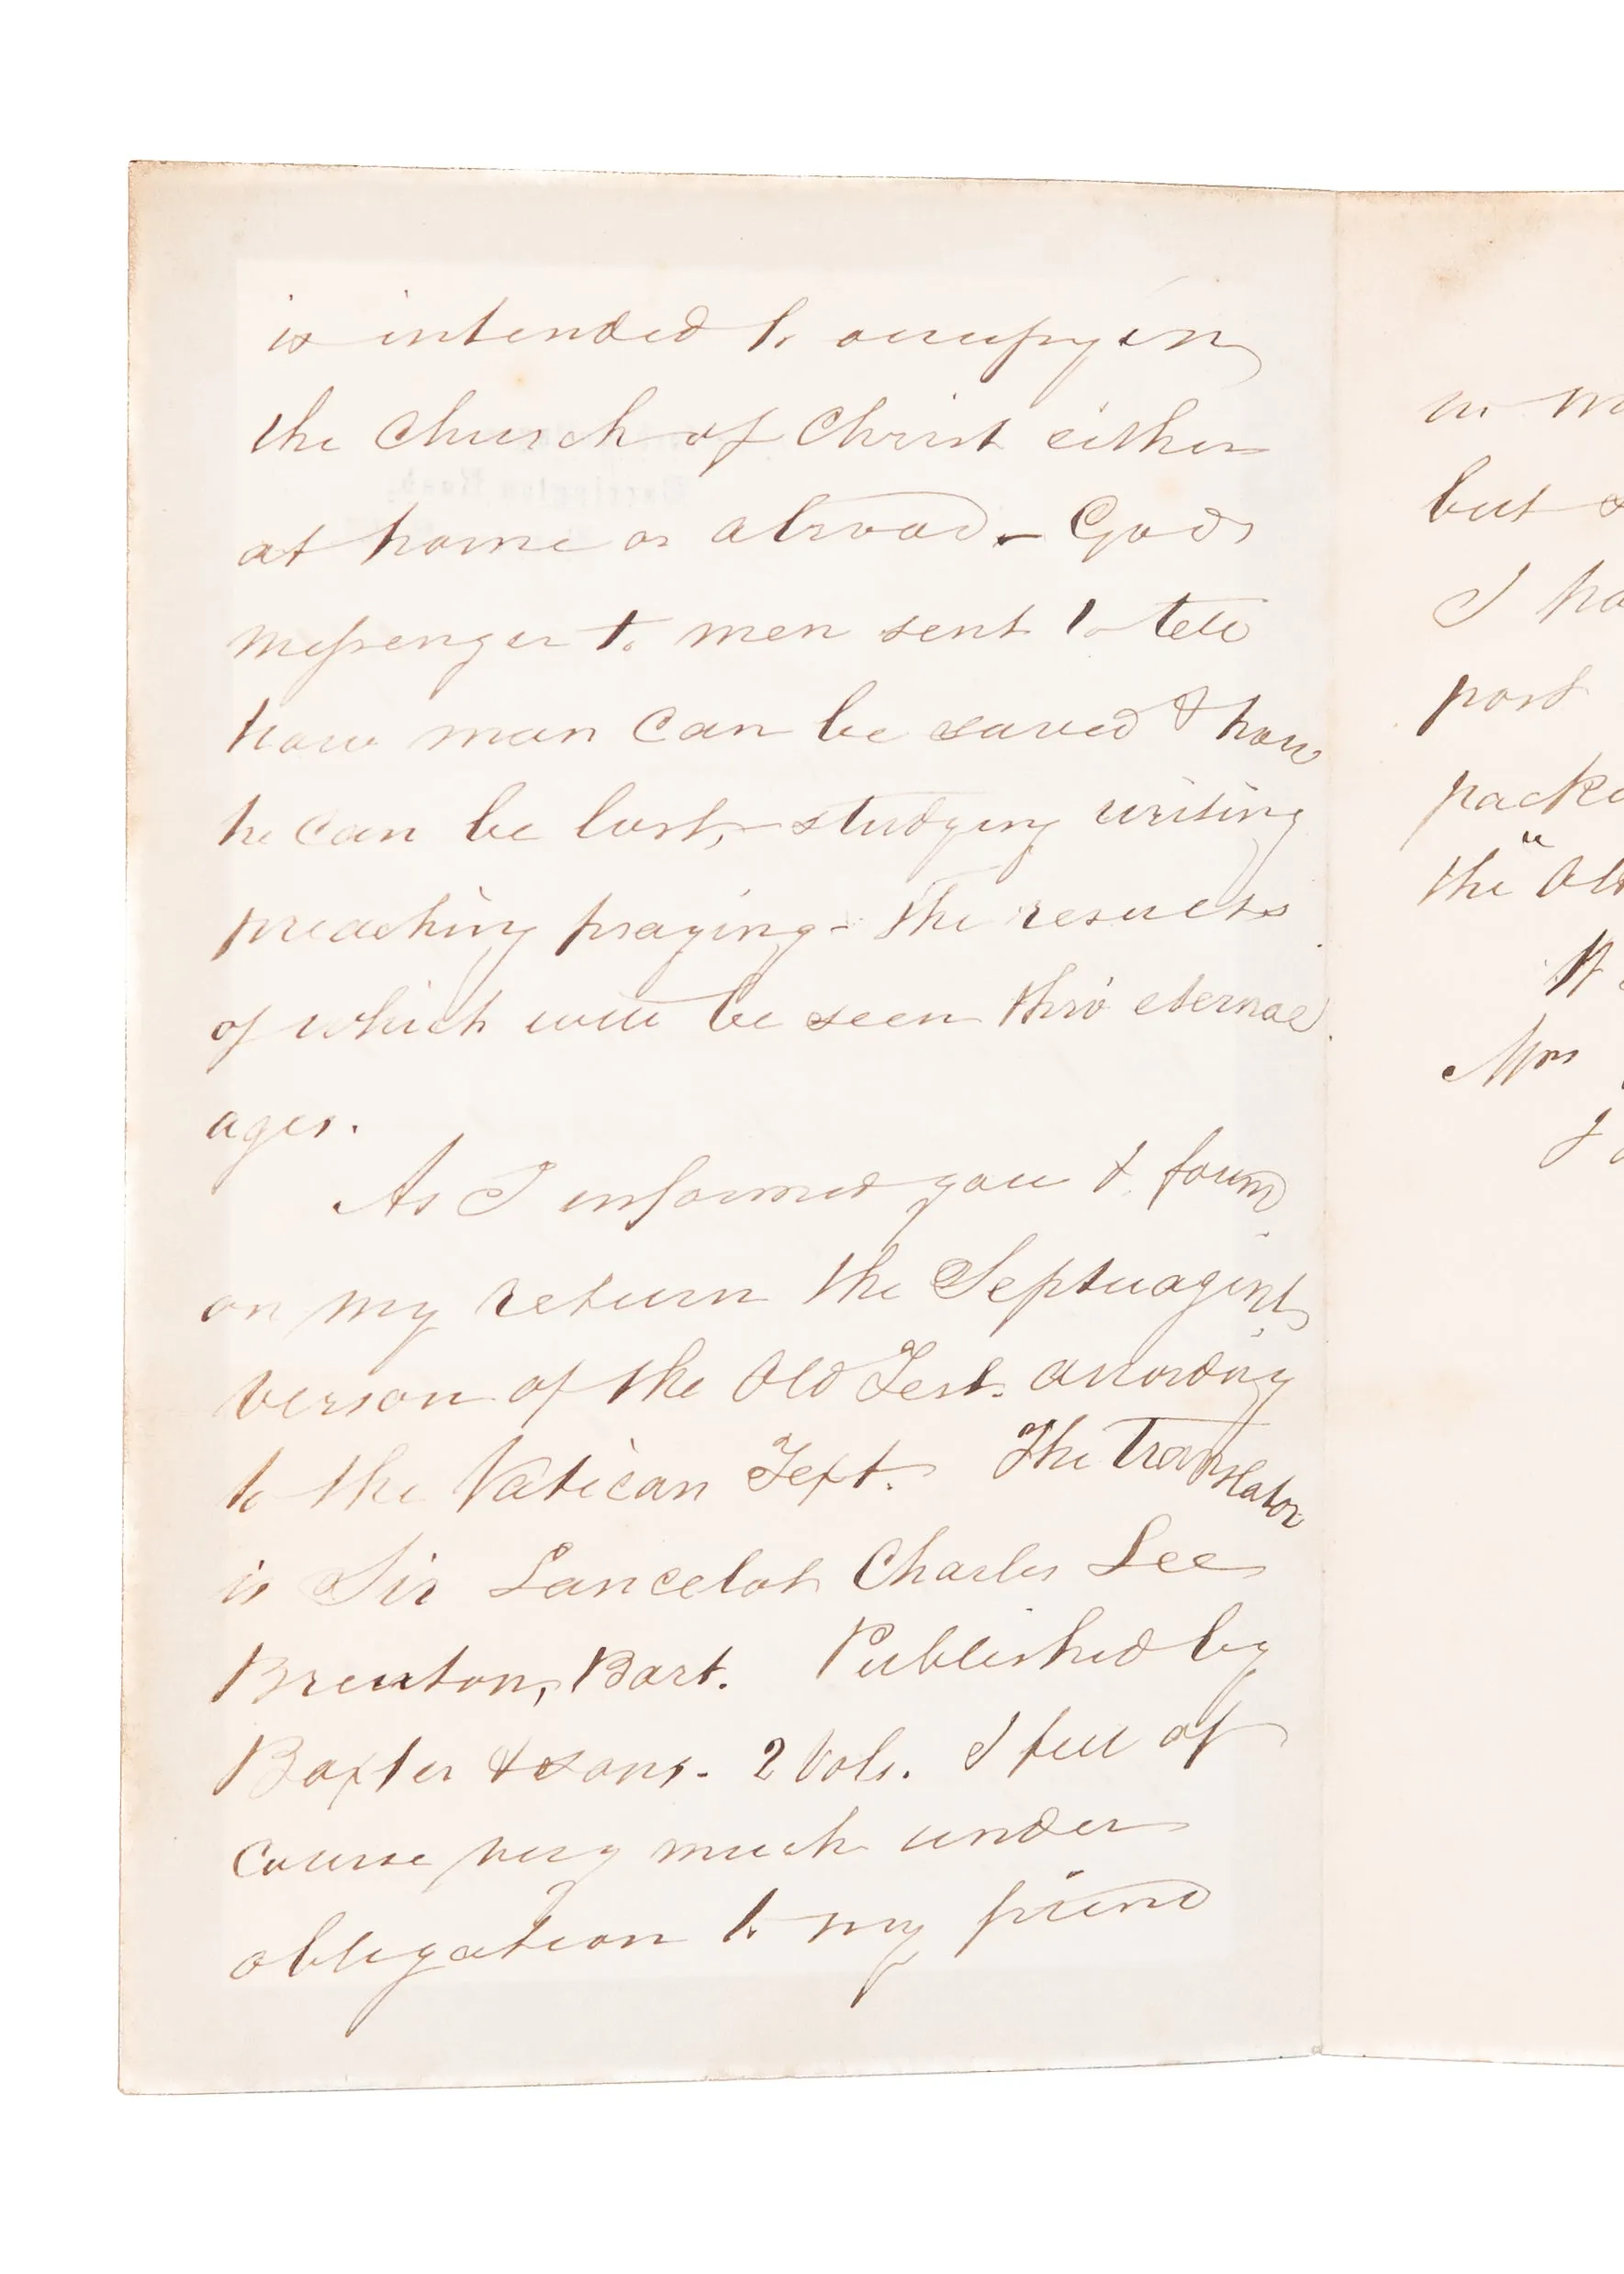 is intended to occupy in
the Church of Christ either
at home or abroad – Gods
messenger to men sent to tell
how man can be saved & how
he can be lost, – studying writing
preaching praying – the results
of which will be seen thro' eternal
ages.
As I informed you I found
on my return the Septuagint
verson of the Old Test. according
to the Vatican Text. The Translator
is Sir Lancelot Charles Lee
Brenton, Bart. Published by
Baxter & sons. 2 Vols. I feel of
course very much under
obligation to my friend
but
I
post
the
Mrs